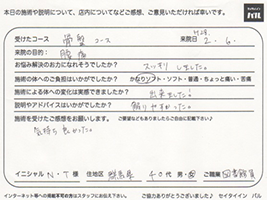 本日の施術や説明について、店内についてなどご感想、ご意見いただければ幸いです。
受けたコース 骨盤コース 来院日 H28. 2. 6.
来院の目的： 腰痛
お悩み解決のお力になれそうでしたか？ スッキリしました。
施術の体へのご負担はいかがでしたか？ かなりソフト・ソフト・普通・ちょっと痛い・苦痛
施術による体への変化は実感できましたか？ 出来ました！
説明やアドバイスはいかがでしたか？ 解りやすかった。
施術を受けたご感想をお願いします。
気持ち良かった。
イニシャル N・T 様 住地区 群馬県 40代 男・女 ご職業 図書館員
インターネット等への掲載不可の方はスタッフにお伝え下さい。 ご協力ありがとうございました♪ セイタイイン バル